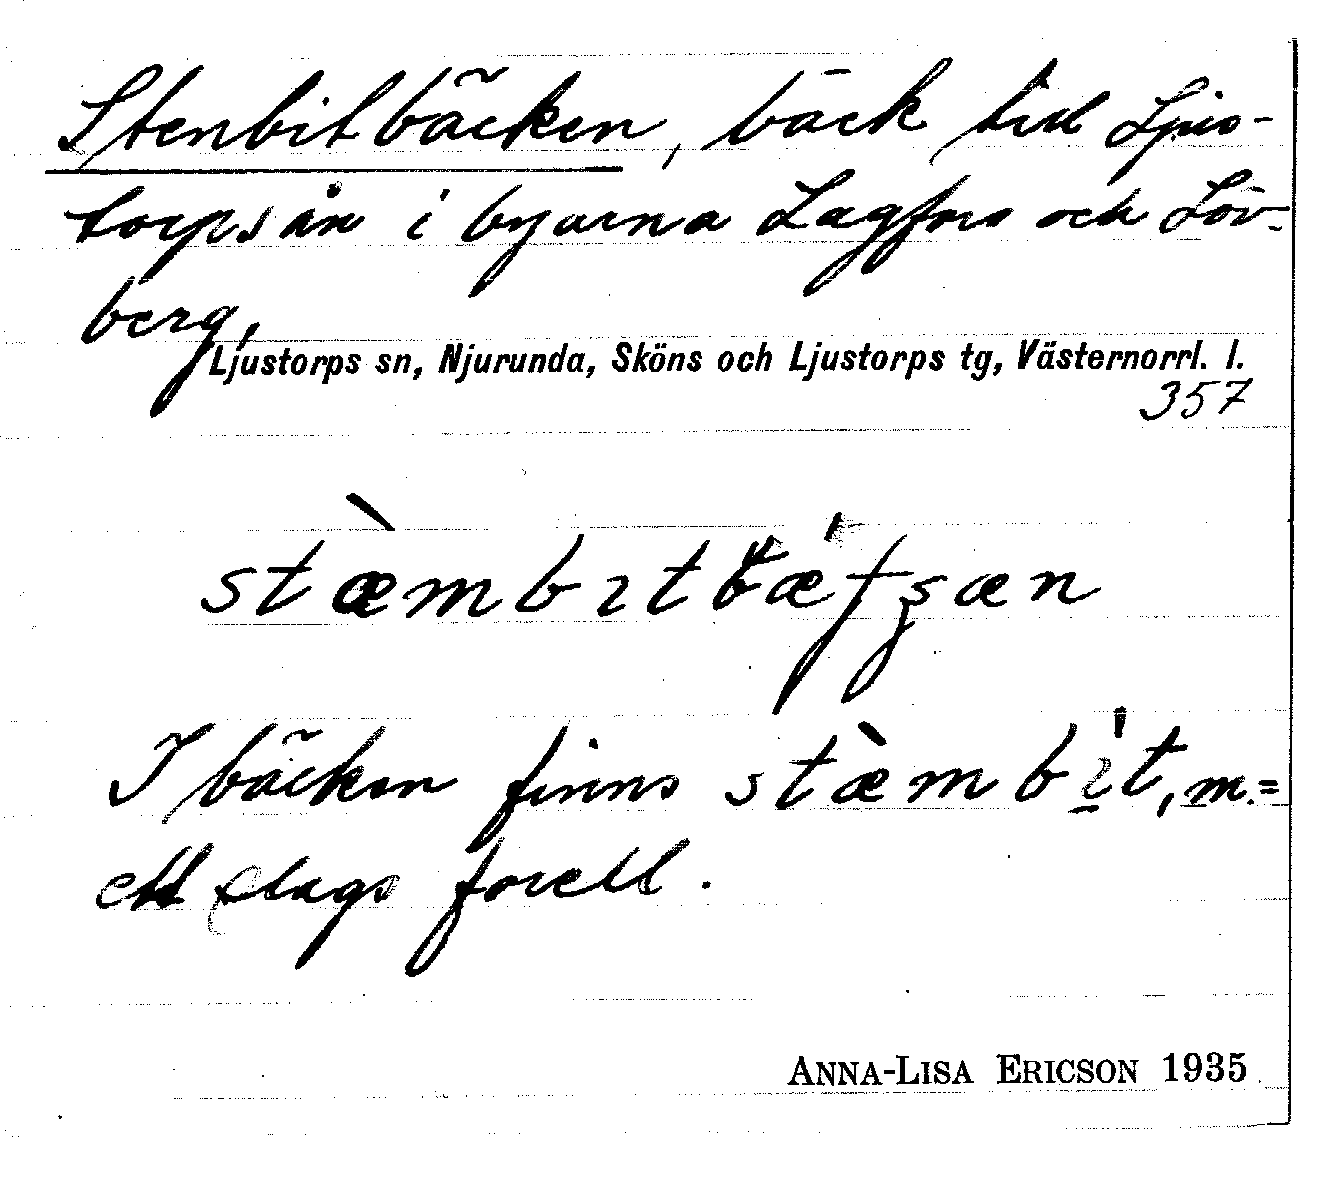 Stenbitbäcken, bäck till Ljus-
torpsån i byarna Lagfors och Löv-
berg,
Ljustorps sn, Njurunda, Sköns och Ljustorps tg, Västernorrl. l.
357
stæ̀mbɪtbæ̀tʂæn
I bäcken finns stæ̀mbɪ̀t, m. =
ett slags forell.
ANNA-LISA ERICSON 1935